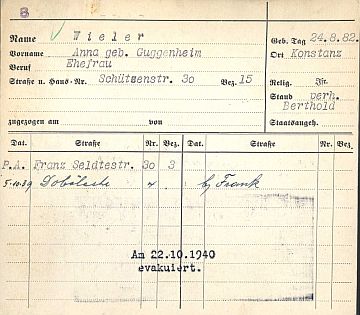 8
Name Wieler Geb. Tag 24.8.82.
Vorname Anna geb. Guggenheim Ort Konstanz
Beruf Ehefrau
Straße u. Haus-Nr. Schützenstr. 30 Bez. 15 Relig. Isr.
Stand verh.
Berthold
zugezogen am von Staatsangeh.
Dat. Straße Nr. Bez. Dat. Straße Nr. Bez.
P.A. Franz Seldtestr. 30 3
5.10.39 Döbelestr 4 b/ Frank
Am 22.10.1940
evakuiert.